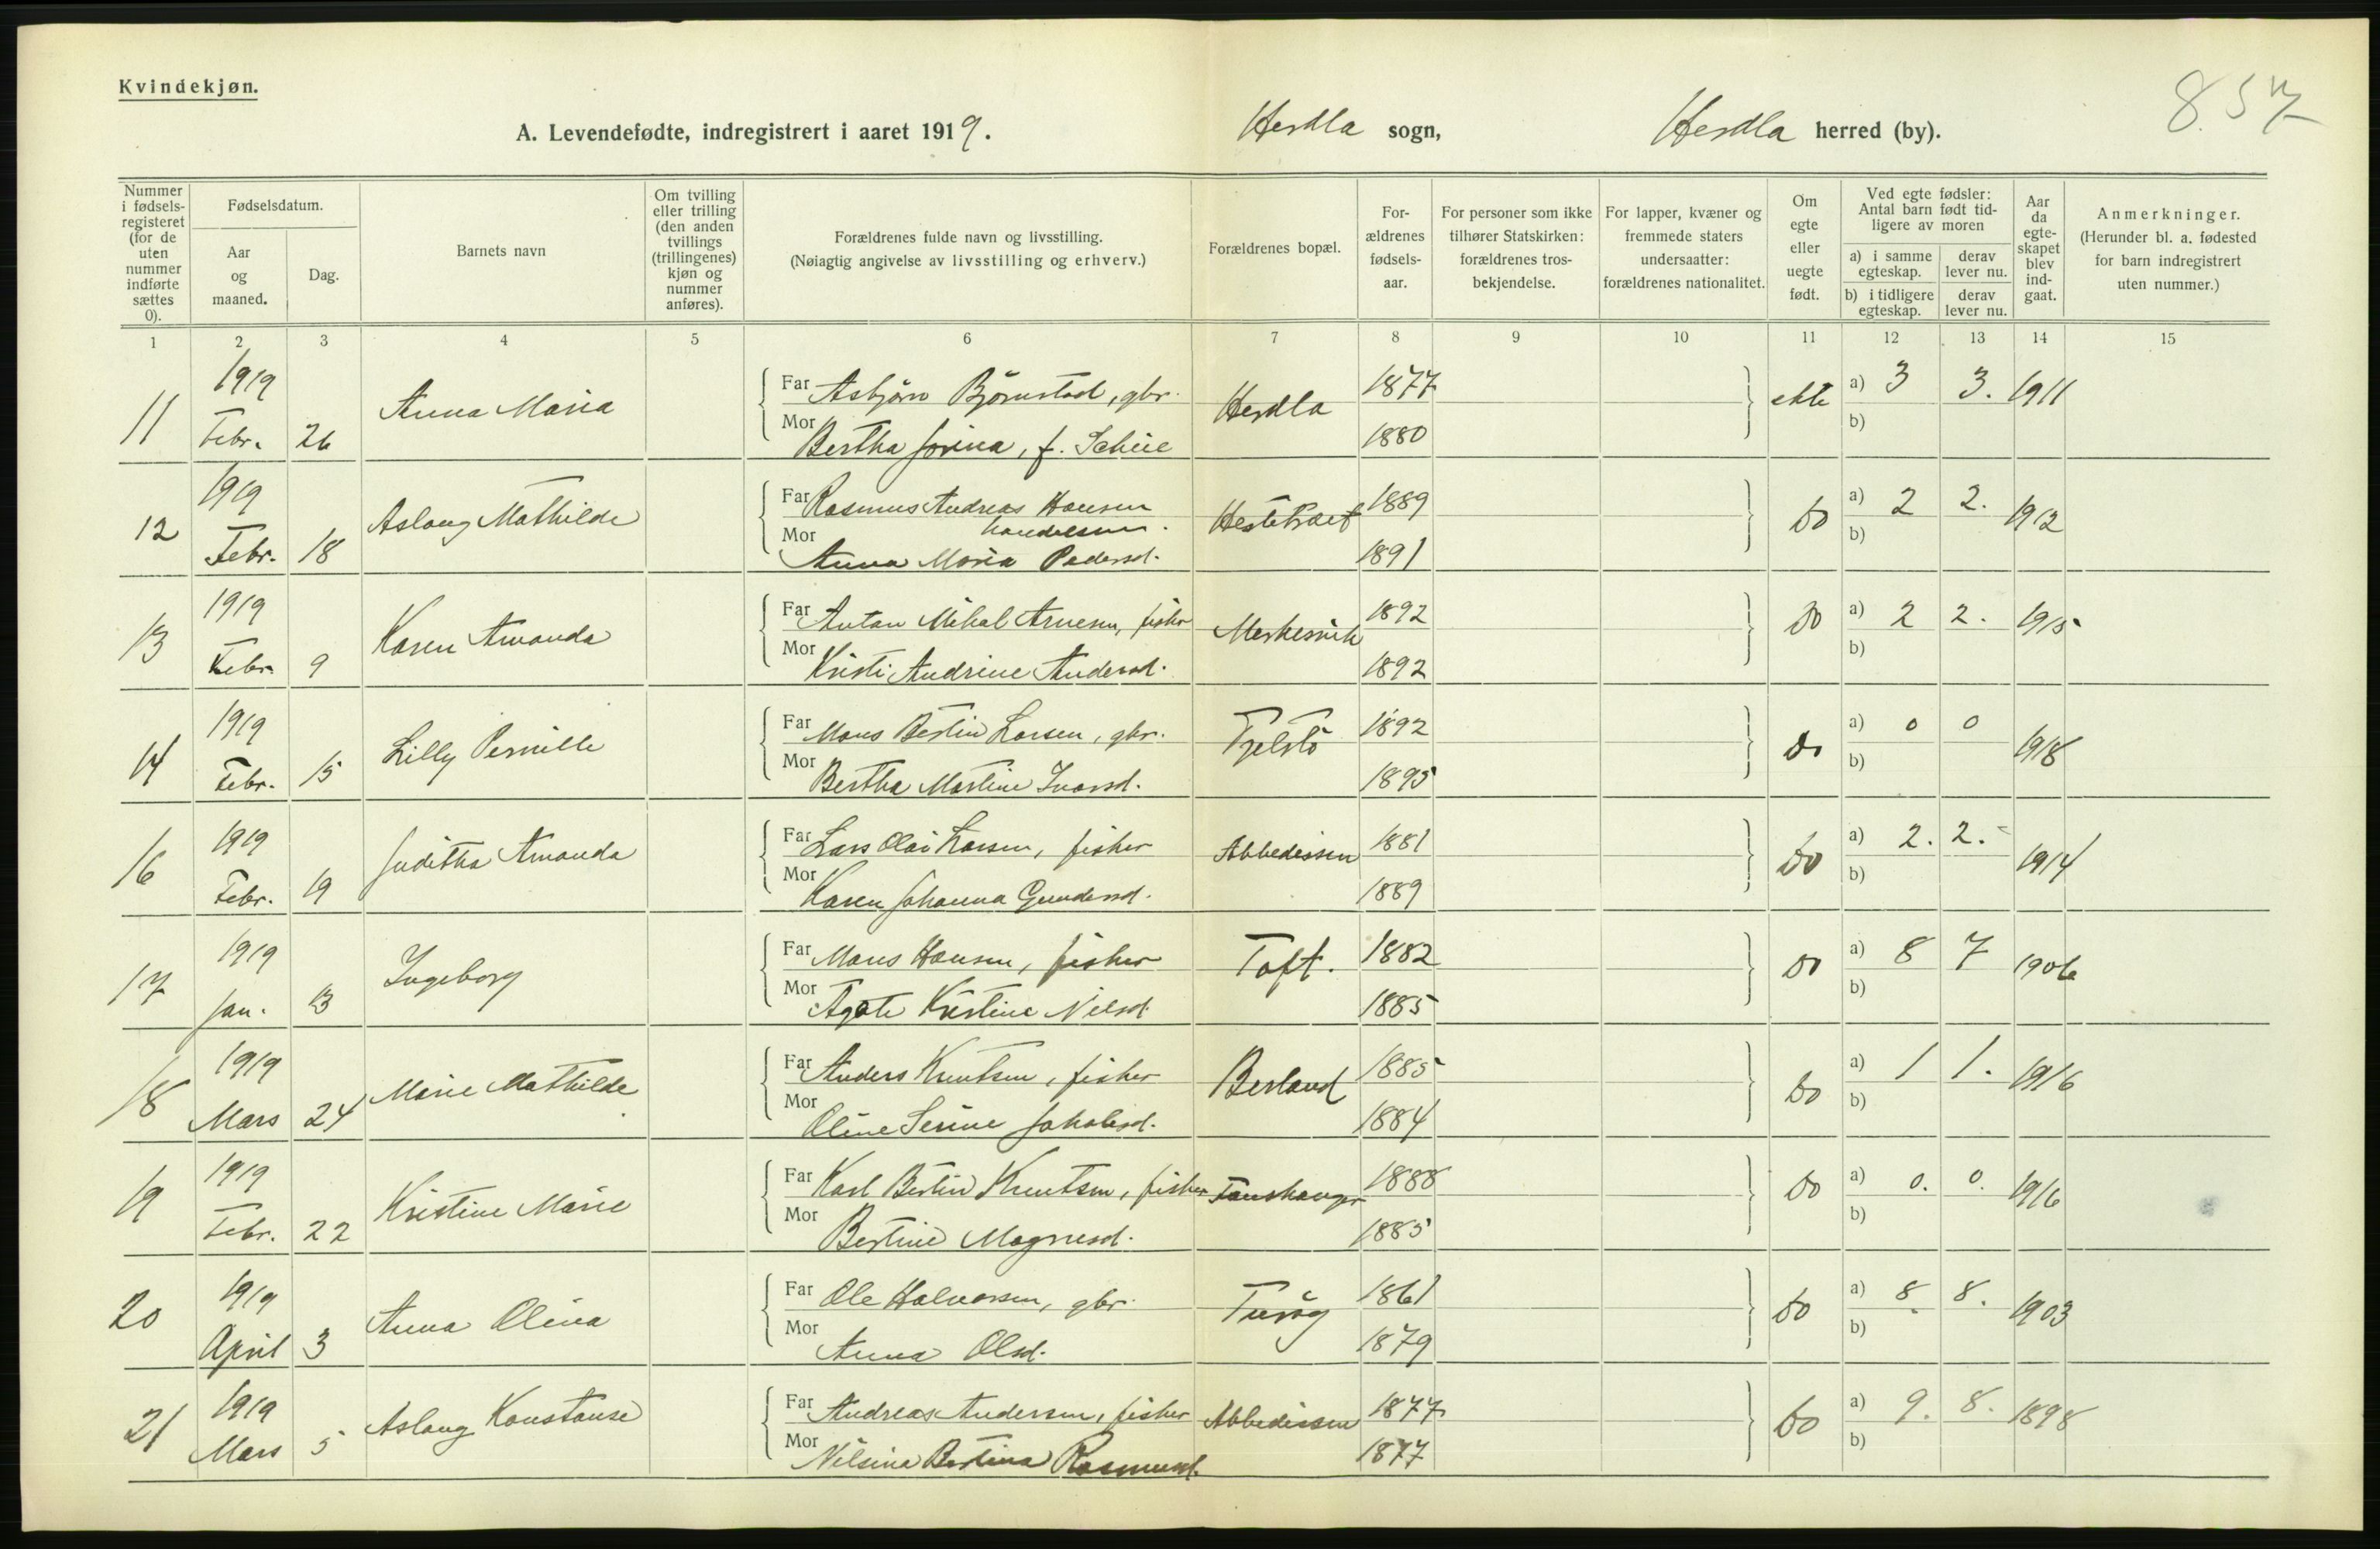 Kvindekjøn.
8.57
A. Levendefødte, indregistrert i aaret 1919. Herdla sogn, Herdla herred (by).
Nummer i fødsels-registeret (for de uten nummer indførte sættes 0).
Fødselsdatum.
Aar og maaned.
Dag.
Barnets navn
Om tvilling eller trilling (den anden tvillings (trillingenes) kjøn og nummer anføres).
Forældrenes fulde navn og livsstilling.
(Nøiagtig angivelse av livsstilling og erhverv.)
Forældrenes bopæl.
For-ældrenes fødsels-aar.
For personer som ikke tilhører Statskirken: forældrenes tros-bekjendelse.
For lapper, kvæner og fremmede staters undersaatter: forældrenes nationalitet.
Om egte eller uegte født.
Ved egte fødsler: Antal barn født tid-ligere av moren
a) i samme egteskap. derav lever nu.
b) i tidligere egteskap. derav lever nu.
Aar da egte-skapet blev ind-gaat.
Anmerkninger.
(Herunder bl. a. fødested for barn indregistrert uten nummer.)
1 2 3 4 5 6 7 8 9 10 11 12 13 14 15
11 1919 Febr. 26 Anna Maria Far Asbjørn Bjørnstad, gbr. Herdla 1877 ekte a) 3 3. 1911
Mor Bertha Jorina, f. Scheie 1880 b)
12 1919 Febr. 18 Aslaug Mathilde Far Rasmus Andreas Hansen handelsm. 1889 do a) 2 2. 1912
Mor Anna Maria Pedersd. 1891 b)
13 1919 Febr. 9 Karen Amanda Far Anton Mikal Arnesen, fisker 1892 do a) 2 2. 1915
Mor Kristi Andrine Andersd. 1892 b)
14 1919 Febr. 15 Lilly Pernille Far Mons Bertin Larsen, gbr. Tjelstö 1892 do a) 0 0 1918
Mor Bertha Martine Ivarsd. 1895 b)
16 1919 Febr. 19 Juditha Amanda Far Lars Olai Larsen, fisker Abbedissen 1881 do a) 2. 2. 1914
Mor Karen Johanna Gundersd. 1889 b)
17 1919 Jan. 13 Ingeborg Far Mons Hansen, fisker Toft. 1882 do a) 8 7 1906
Mor Agate Kristine Nilsd. 1885 b)
18 1919 Mars 24 Marie Mathilde Far Anders Knutsen, fisker Berland 1885 do a) 1 1. 1916
Mor Oline Serine Jakobsd. 1884 b)
19 1919 Febr. 22 Kristine Marie Far Karl Bertin Knutsen, fisker 1888 do a) 0. 0. 1916
Mor Bertine Magnesd. 1885 b)
20 1919 April 3 Anna Olina Far Ole Halvorsen, gbr. Turöy 1861 do a) 8 8. 1903
Mor Anna Olsd. 1879 b)
21 1919 Mars 5 Aslaug Konstanse Far Andreas Andersen, fisker Abbedissen 1877 do a) 9. 8. 1898
Mor Nilsina Bertina Rasmusd. 1877 b)